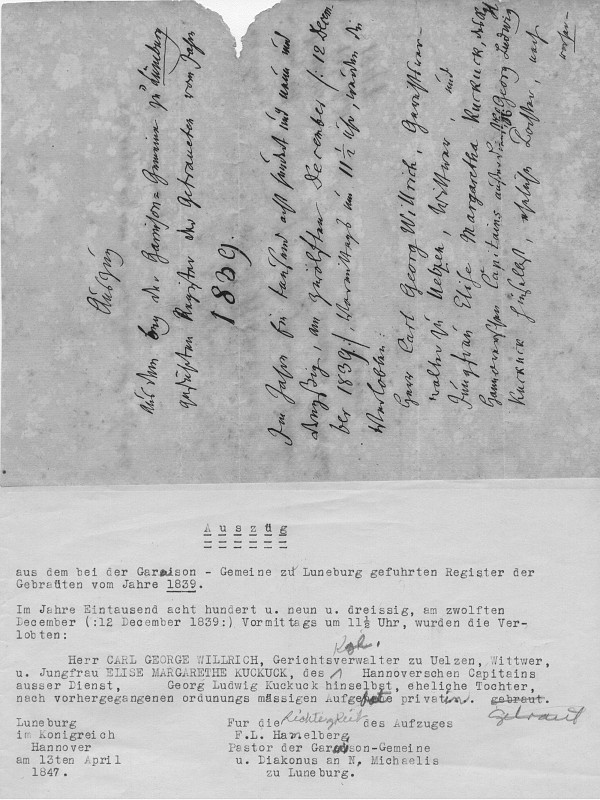 Auszug
Aus dem bey der Garnison-Gemeine zu Lüneburg
geführten Register der Getraueten vom Jahre
1839.
Im Jahre Ein tausend acht hundert und neun und
dreyßig, am zwölften December /: 12 Decem
ber 1839 :/, Vormittags um 11½ Uhr, wurden die
Verlobten:
Herr Carl Georg Willrich, Gerichtsver-
walter zu Uelzen, Wittwer, und
Jungfrau Elise Margaretha Kuckuck, des
Hannoverschen Capitains außer Dienst, Georg Ludwig
Kuckuck hieselbst, eheliche Tochter, nach
vorher-
A u s z ü g
aus dem bei der Garnison - Gemeine zu Luneburg gefuhrten Register der
Gebraüten vom Jahre 1839.
Im Jahre Eintausend acht hundert u. neun u. dreissig, am zwolften
December (:12 December 1839:) Vormittags um 11½ Uhr, wurden die Ver-
lobten:
Kgh.
Herr CARL GEORGE WILLRICH, Gerichtsverwalter zu Uelzen, Wittwer,
u. Jungfrau ELISE MARGARETHE KUCKUCK, des Hannoverschen Capitains
ausser Dienst, Georg Ludwig Kuckuck hinselbst, eheliche Tochter,
nach vorhergegangenen ordunungs mässigen Aufgebote privatim. gebraut.
getraut
Luneburg Fur die Richtigkeit des Aufzuges
im Konigreich F.L. Hamelberg
Hannover Pastor der Garnison-Gemeine
am 13ten April u. Diakonus an N. Michaelis
1847. zu Luneburg.